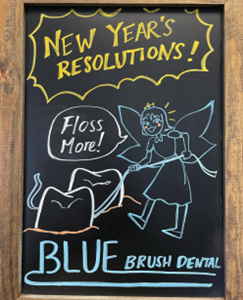 NEW YEAR'S
RESOLUTIONS!
Floss
More!
BLUE BRUSH DENTAL